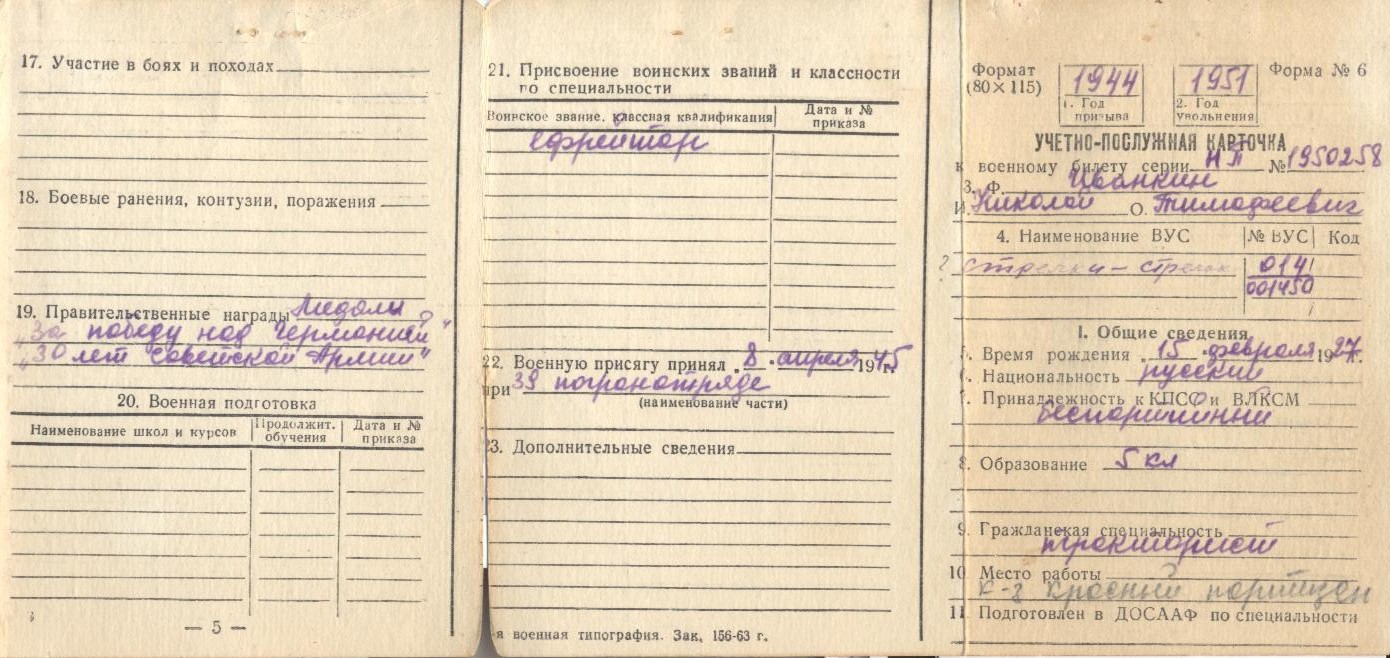 17. Участие в боях и походах
18. Боевые ранения, контузии, поражения
19. Правительственные награды Медали
„За победу над Германией“
„30 лет Советской Армии“
20. Военная подготовка
Наименование школ и курсов
Продолжит. обучения
Дата и № приказа
— 5 —
21. Присвоение воинских званий и классности
по специальности
Воинское звание, классная квалификация
Дата и № приказа
ефрейтор
22. Военную присягу принял „8 апреля 1945 г.
при 39 погранотряде
(наименование части)
23. Дополнительные сведения
-я военная типография. Зак. 156-63 г.
Формат
(80×115)
1944
1. Год
призыва
1951
2. Год
увольнения
Форма № 6
УЧЕТНО-ПОСЛУЖНАЯ КАРТОЧКА
к военному билету серии НП № 1950258
3. Ф. Иванкин
И. Николай О. Тимофеевич
4. Наименование ВУС № ВУС Код
? стрелки — стрелок 014
001450
1. Общие сведения
5. Время рождения „15 февраля 1927.
6. Национальность русский
7. Принадлежность к КПСС и ВЛКСМ
беспартийный
8. Образование 5 кл
9. Гражданская специальность
тракторист
10. Место работы
к-з Красный партизан
11. Подготовлен в ДОСААФ по специальности